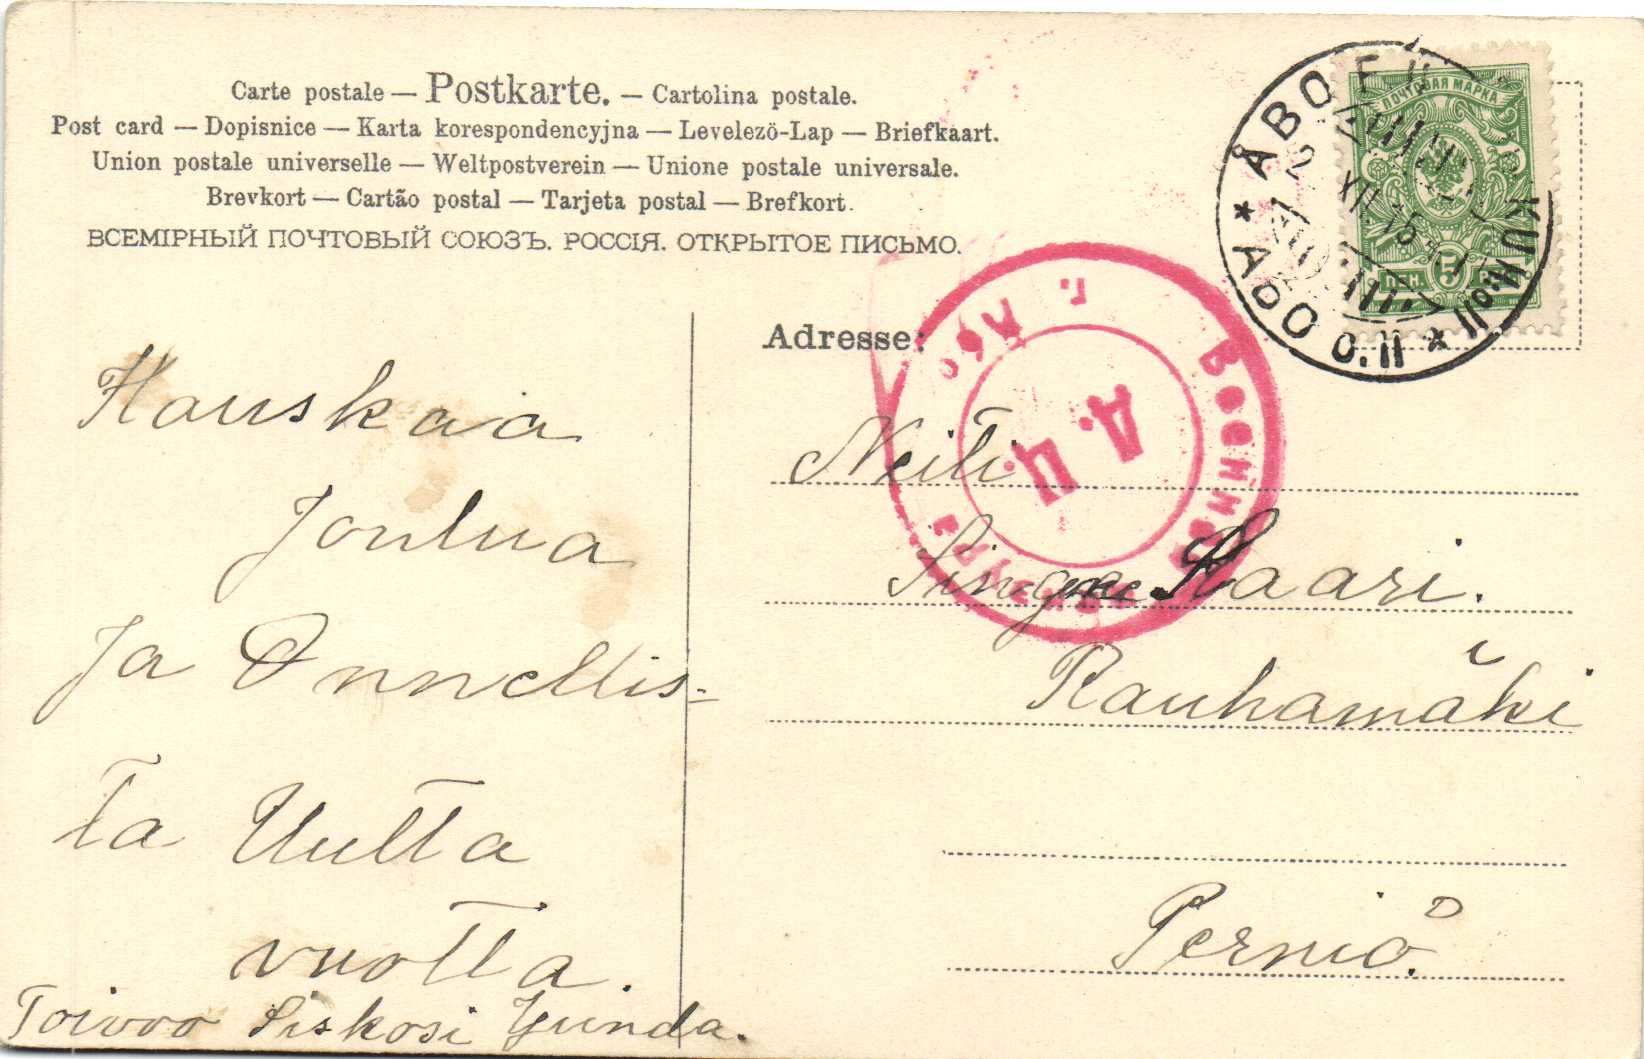 Carte postale — Postkarte. — Cartolina postale.
Post card — Dopisnice — Karta korespondencyjna — Levelezö-Lap — Briefkaart.
Union postale universelle — Weltpostverein — Unione postale universale.
Brevkort — Cartão postal — Tarjeta postal — Brefkort.
ВСЕМІРНЫЙ ПОЧТОВЫЙ СОЮЗЪ. РОССІЯ. ОТКРЫТОЕ ПИСЬМО.
ПОЧТОВАЯ МАРКА
5
ПЕН.
ÅBO
XII 15
Adresse:
г. Або
Д. Ц.
Hauskaa
Joulua
Ja Onnellis-
ta Uutta
vuotta.
Toivoo Siskosi
Neiti
Saari.
Rauhamäki
Perniö.